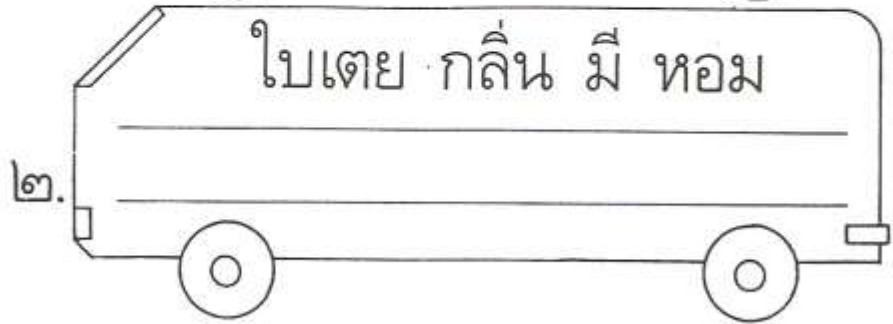 ใบเตย กลิ่น มี หอม
๒.